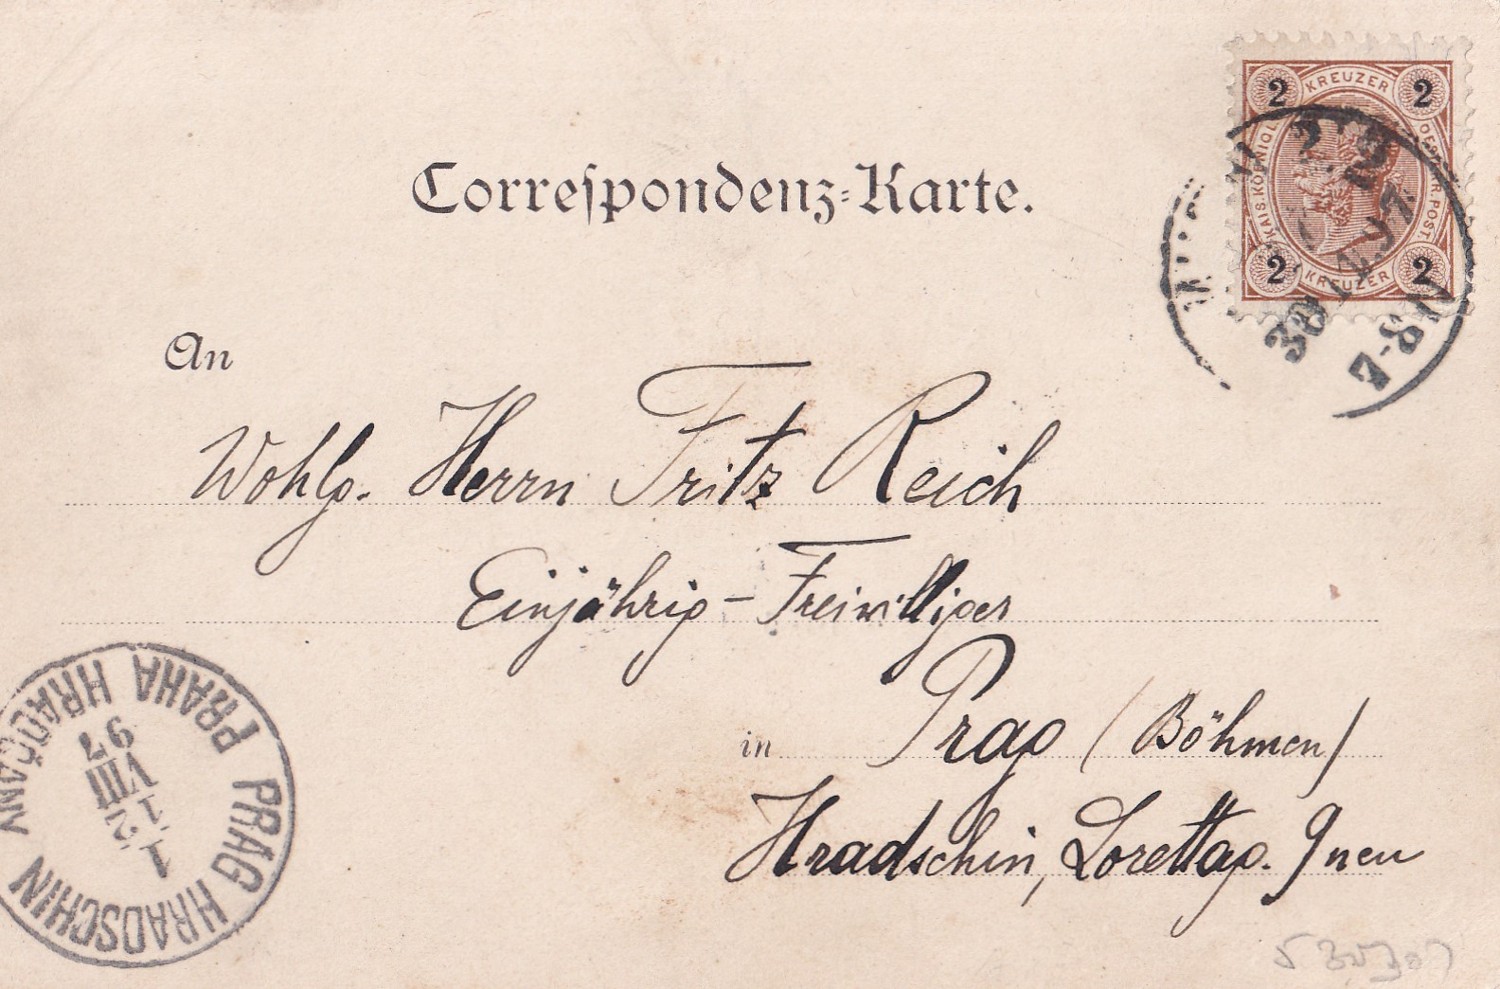 Correspondenz-Karte.
2 KREUZER 2
KAIS. KÖNIGL. OESTERR. POST.
2 KREUZER 2
30 97
An
Wohlg. Herrn Fritz Reich
Einjährig-Freiwilliger
in Prag (Böhmen)
Hradschin, Lorettag.
PRAG HRADSCHIN
PRAHA HRADČANY
1
12
VIII
97